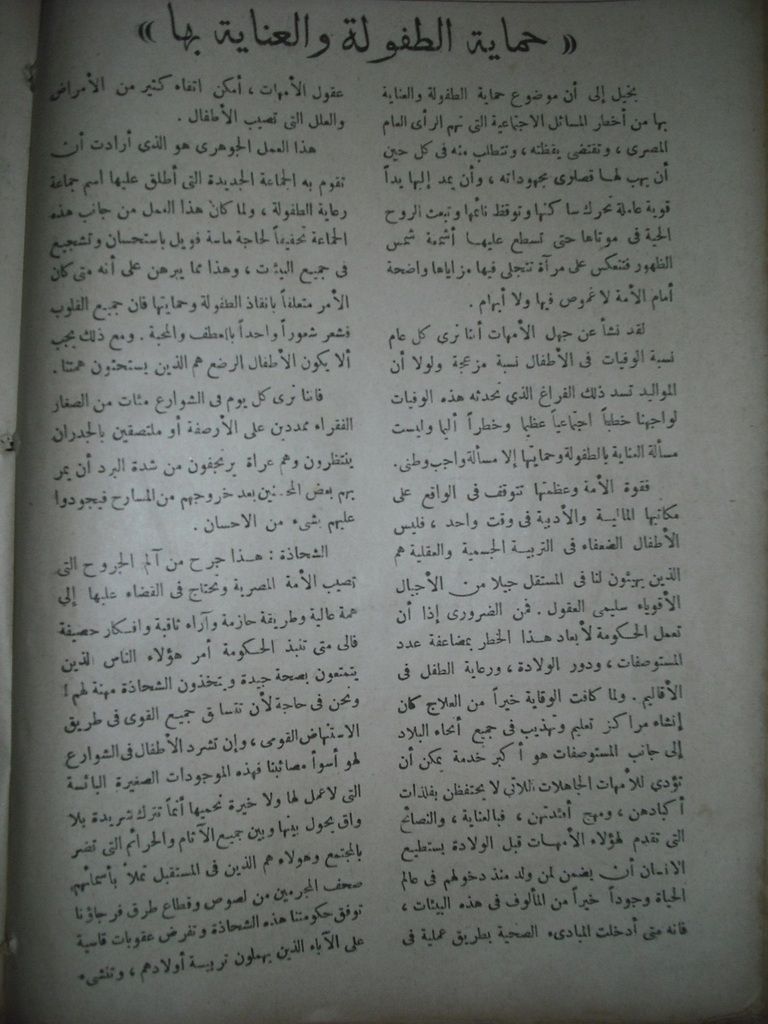 « حماية الطفولة والعناية بها »
يخيل إلى أن موضوع حماية الطفولة والعناية
بها من أخطار المسائل الاجتماعية التى تهم الرأى العام
المصرى ، وتقتضى يقظته ، وتتطلب منه فى كل حين
أن يهب لها قصارى مجهوداته ، وأن يمد إليها يداً
قوية عاملة تحرك ساكنها وتوقظ نائمها وتبعث الروح
الحية فى موتاها حتى تسطع عليها أشعة شمس
الظهور فتنعكس على مرآة تتجلى فيها مزاياها واضحة
أمام الأمة لا غموض فيها ولا أبهام .
لقد نشأ عن جهل الأمهات أننا نرى كل عام
نسبة الوفيات فى الأطفال نسبة مزعجة ولولا أن
المواليد تسد ذلك الفراغ الذي تحدثه هذه الوفيات
لواجهنا خطباً اجتماعياً عظيما وخطراً أليما وليست
مسألة العناية بالطفولة وحمايتها إلا مسألة واجب وطنى .
فقوة الأمة وعظمتها تتوقف فى الواقع على
مكانيها المالية والأدبية فى وقت واحد ، فليس
الأطفال الضعفاء فى التربية الجسمية والعقلية هم
الذين يهيئون لنا فى المستقل جيلا من الأجيال
الأقوياء سليمى العقول . فمن الضرورى إذا أن
تعمل الحكومة لأبعاد هذا الخطر بمضاعفة عدد
المستوصفات ، ودور الولادة ، ورعاية الطفل فى
الأقاليم . ولما كافت الوقاية خيراً من العلاج كان
إنشاء مراكز تعليم وتهذيب فى جميع أنحاء البلاد
إلى جانب المستوصفات هو أكبر خدمة يمكن أن
تؤدي للأمهات الجاهلات اللاتى لا يحتفظن بفلذات
أكبادهن ، ومهج أفئدتهن ، فبالعناية ، والنصائح
التى تقدم لهؤلاء الأمهات قبل الولادة يستطيع
الانسان أن يضمن لمن ولد منذ دخولهم فى عالم
الحياة وجوداً خيراً من المألوف فى هذه البيئات ،
فانه متى أدخلت المبادىء الصحية بطريق عملية فى
عقول الأمهات ، أمكن اتقاء كثير من الأمراض
والعلل التى تصيب الأطفال .
هذا العمل الجوهرى هو الذى أرادت أن
تقوم به الجماعة الجديدة التى أطلق عليها اسم جماعة
رعاية الطفولة ، ولما كان هذا العمل من جانب هذه
الجماعة تحقيقاً لحاجة ماسة فوبل باستحسان وتشجيع
فى جميع البيئت ، وهذا مما يبرهن على أنه متى كان
الأمر متعلقاً بانقاذ الطفولة وحمايتها فان جميع القلوب
فشعر شعوراً واحداً بالعطف والمحبة . ومع ذلك يجب
ألا يكون الأطفال الرضع هم الذين يستحثون همتنا .
فاننا نرى كل يوم فى الشوارع مئات من الصغار
الفقراء ممددين على الأرصفة أو ملتصقين بالجدران
ينتظرون وهم عراة يرتجفون من شدة البرد أن يمر
بهم بعض المحسنين بعد خروجهم من المسارح فيجودوا
عليهم بشىء من الاحسان .
الشحاذة : هذا جرح من آلم الجروح التى
تصيب الأمة المصرية ونحتاج فى القضاء عليها إلى
همة عالية وطريقة حازمة وآراء ثاقبة وافكار حصيفة
فالى متى تنبذ الحكومة أمر هؤلاء الناس الذين
يتمتعون بصحة جيدة ويتخذون الشحاذة مهنة لهم !
ونحن فى حاجة لأن تتساق جميع القوى فى طريق
الاستنهاض القومى ، وإن تشرد الأطفال فى الشوارع
لهو أسوأ مصائبنا فهذه الموجودات الصغيرة البائسة
التى لاعمل لها ولا خيرة نحميها أنما تترك شريدة بلا
واق يحول بينها وبين جميع الآثام والجرائم التى تضر
بالمجتمع وهولاء هم الذين فى المستقبل تملأ بأسمائهم
صحف المجرمين من لصوص وقطاع طرق فرجاؤنا
توفق حكومتنا هذه الشحاذة وتفرض عقوبات قاسية
على الآباء الذين يهملون تربيسة أولادهم ، وتنشىء